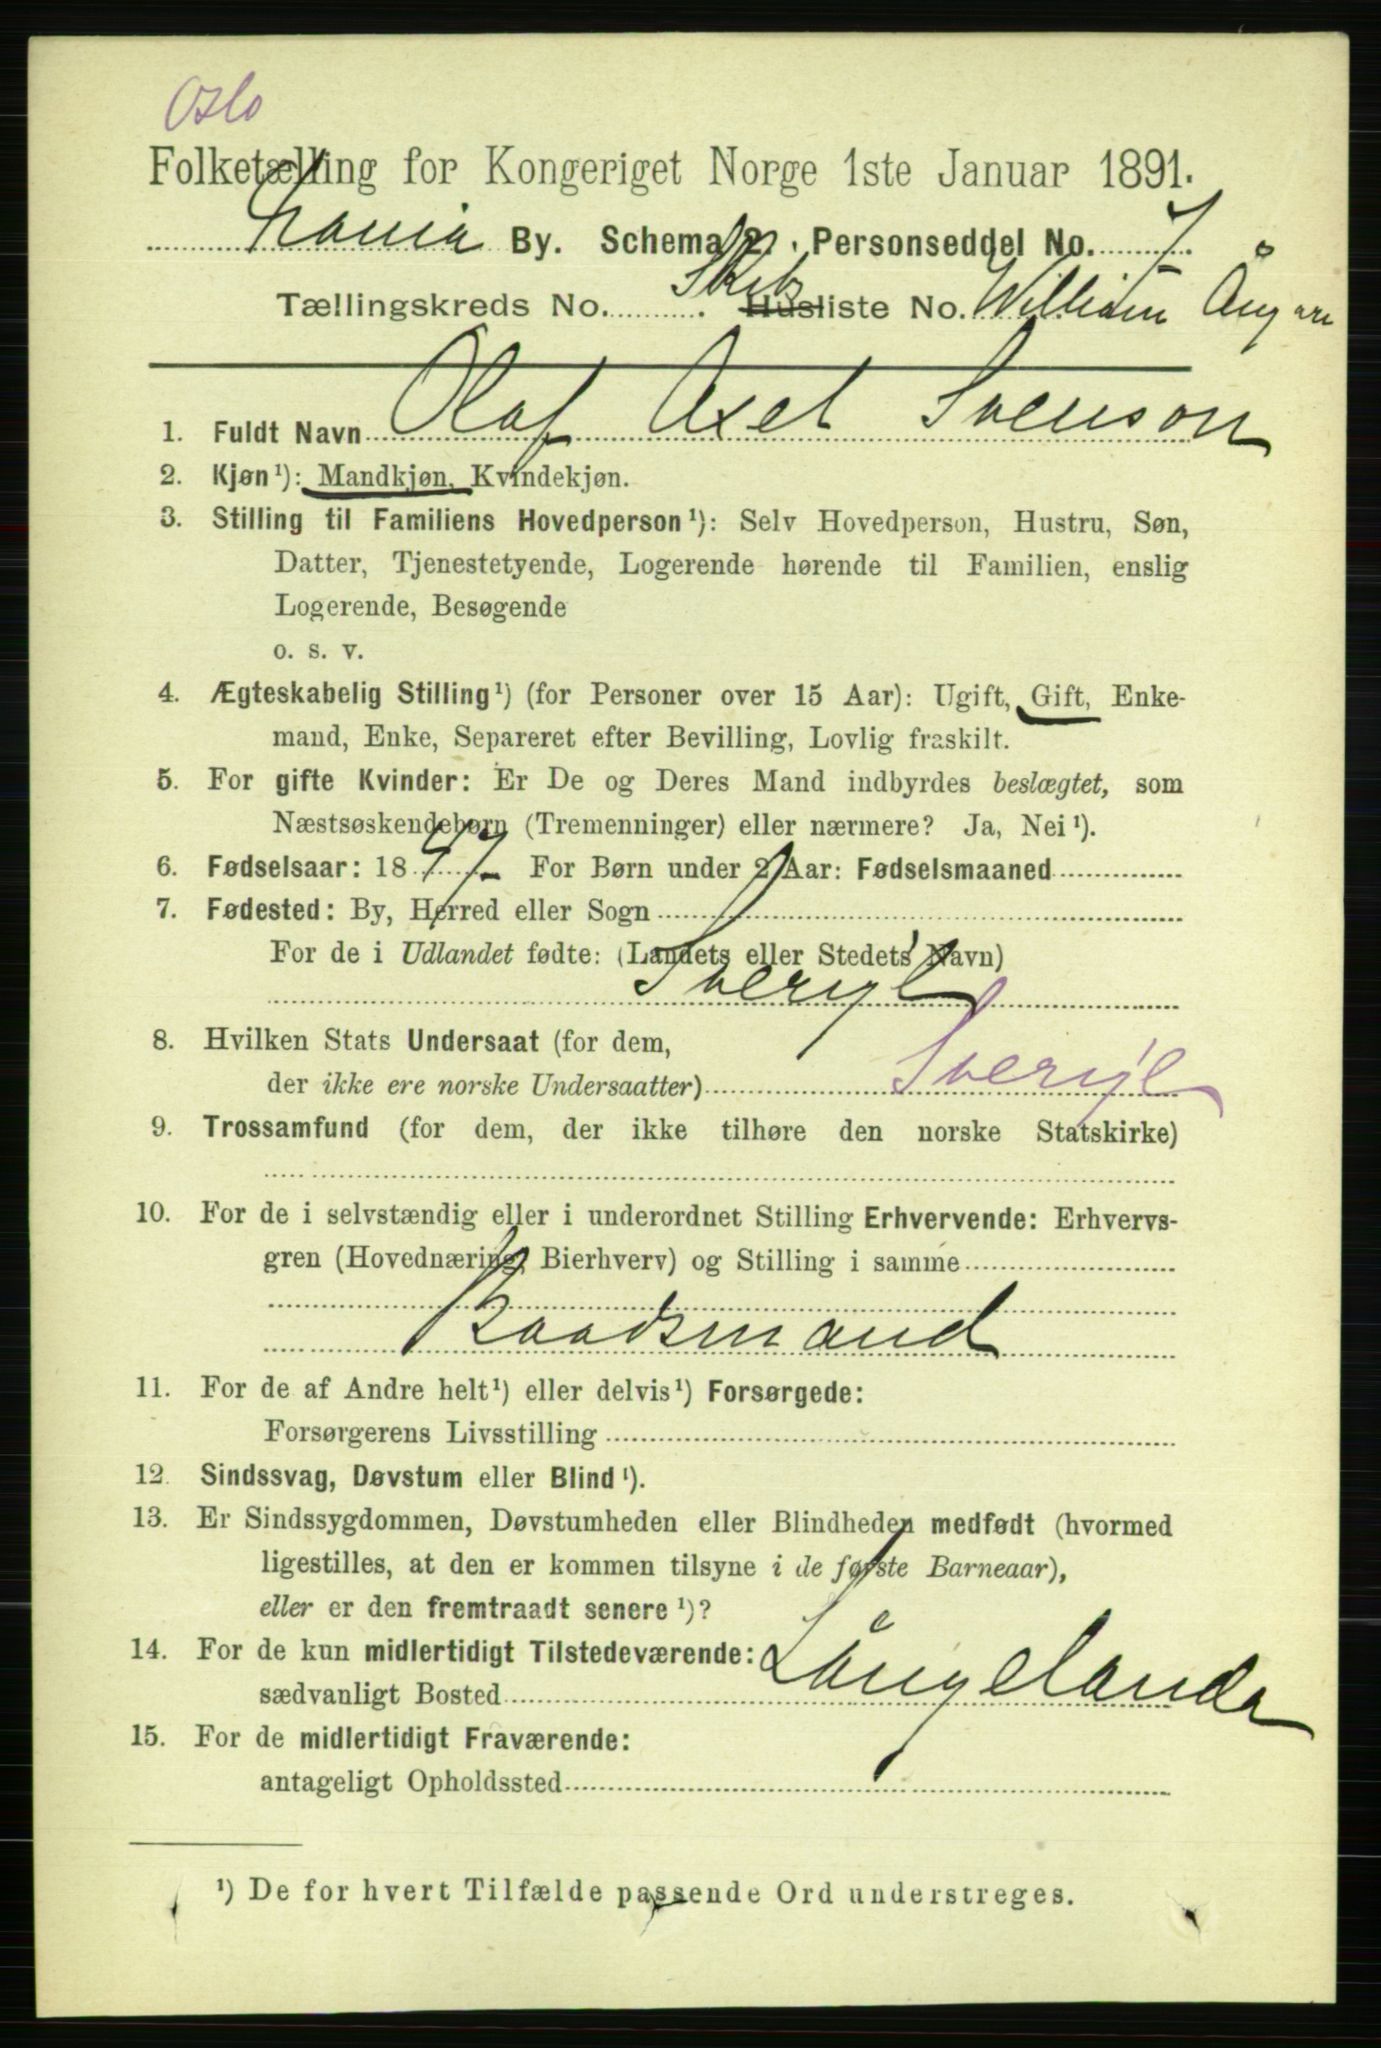 Oslo
Folketælling for Kongeriget Norge 1ste Januar 1891.
By. Schema 2. Personseddel No. 7
Tællingskreds No. Skibs Husliste No. William
1. Fuldt Navn Olof Axel Svenson
2. Kjøn¹): Mandkjøn, Kvindekjøn.
3. Stilling til Familiens Hovedperson¹): Selv Hovedperson, Hustru, Søn,
Datter, Tjenestetyende, Logerende hørende til Familien, enslig
Logerende, Besøgende
o. s. v.
4. Ægteskabelig Stilling¹) (for Personer over 15 Aar): Ugift, Gift, Enke-
mand, Enke, Separeret efter Bevilling, Lovlig fraskilt.
5. For gifte Kvinder: Er De og Deres Mand indbyrdes beslægtet, som
Næstsøskendebørn (Tremenninger) eller nærmere? Ja, Nei¹).
6. Fødselsaar: 1847 For Børn under 2 Aar: Fødselsmaaned
7. Fødested: By, Herred eller Sogn
For de i Udlandet fødte: (Landets eller Stedets Navn)
Sverige
8. Hvilken Stats Undersaat (for dem,
der ikke ere norske Undersaatter) Sverige
9. Trossamfund (for dem, der ikke tilhøre den norske Statskirke)
10. For de i selvstændig eller i underordnet Stilling Erhvervende: Erhvervs-
gren (Hovednæring, Bierhverv) og Stilling i samme
Baadsmand
11. For de af Andre helt¹) eller delvis¹) Forsørgede:
Forsørgerens Livsstilling
12. Sindssvag, Døvstum eller Blind¹).
13. Er Sindssygdommen, Døvstumheden eller Blindheden medfødt (hvormed
ligestilles, at den er kommen tilsyne i de første Barneaar),
eller er den fremtraadt senere¹)?
14. For de kun midlertidigt Tilstedeværende:
sædvanligt Bosted Långelanda
15. For de midlertidigt Fraværende:
antageligt Opholdssted
¹) De for hvert Tilfælde passende Ord understreges.